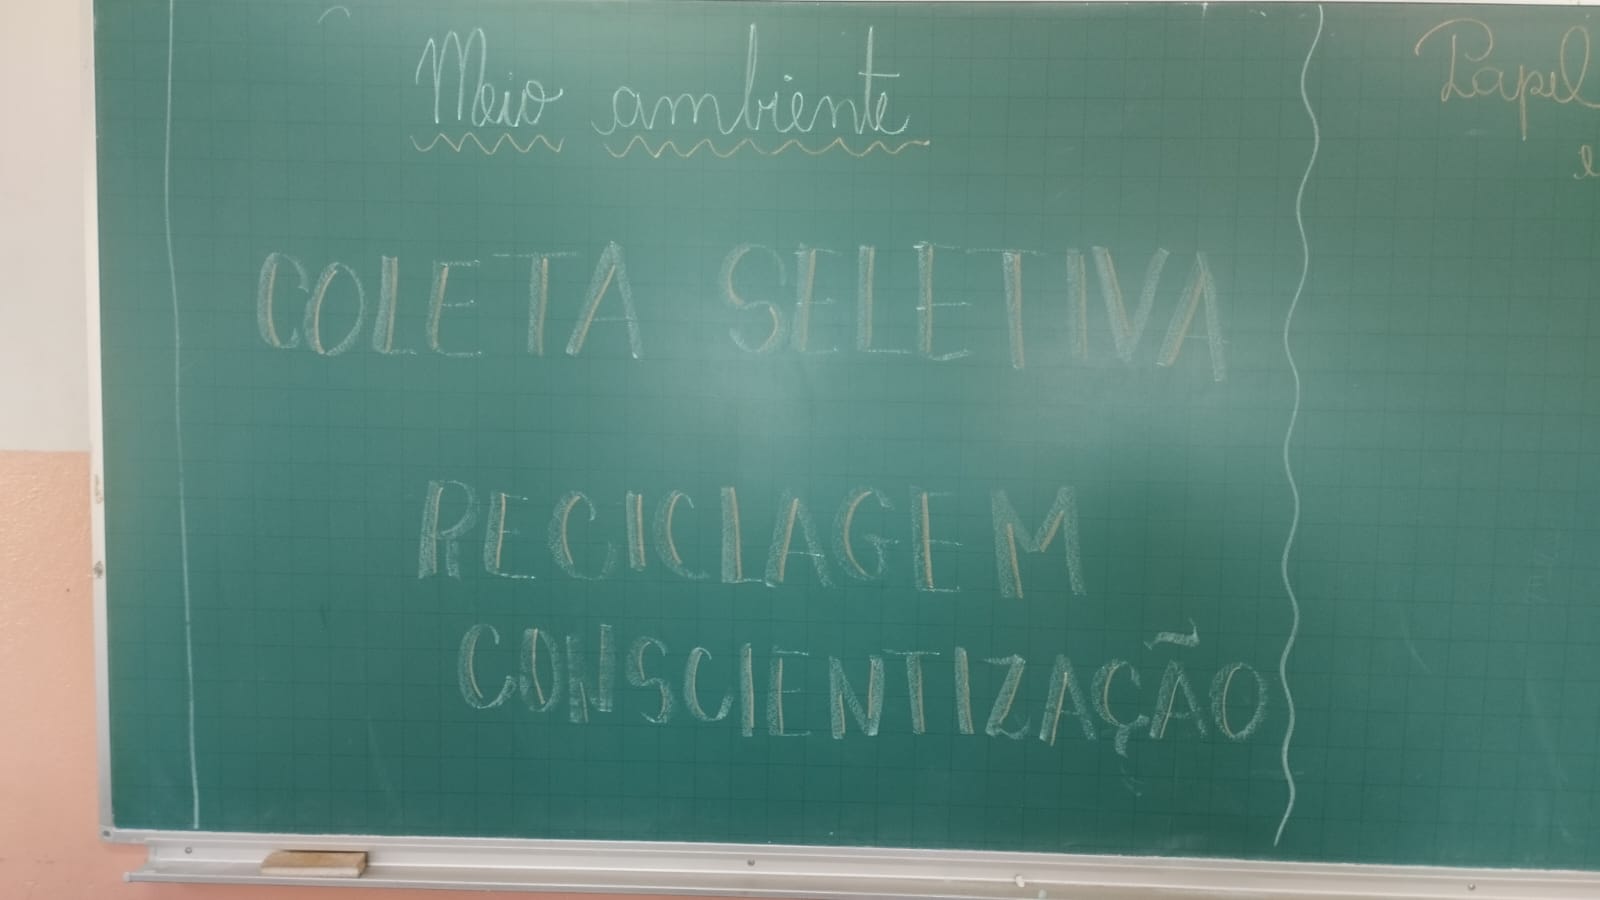 Meio ambiente
COLETA SELETIVA
RECICLAGEM
CONSCIENTIZAÇÃO
Papel
e